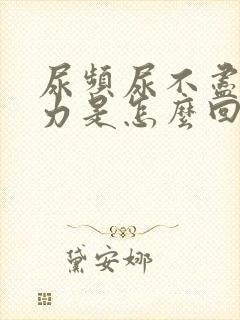 尿頻尿不盡
力是怎麼回
黛安娜